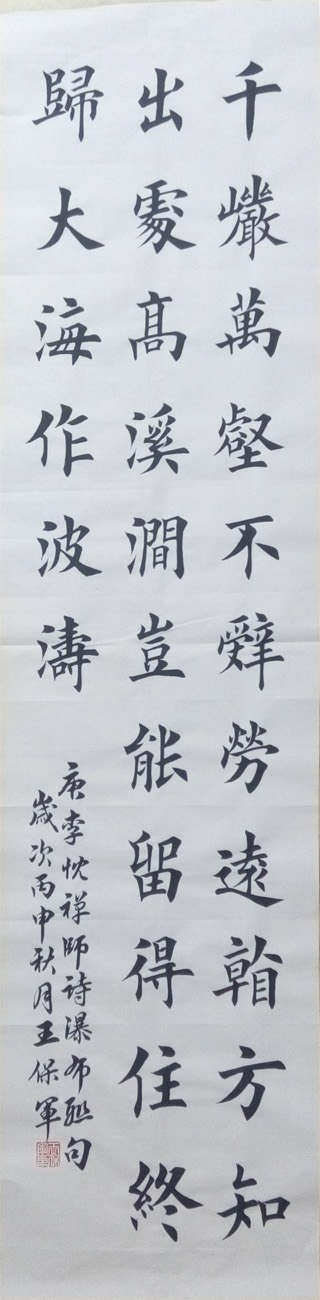 千巖萬壑不辭勞遠看方知
出處髙溪澗豈能留得住終
歸大海作波濤
唐李忱禅師詩瀑布联句
歲次丙申秋月王保軍